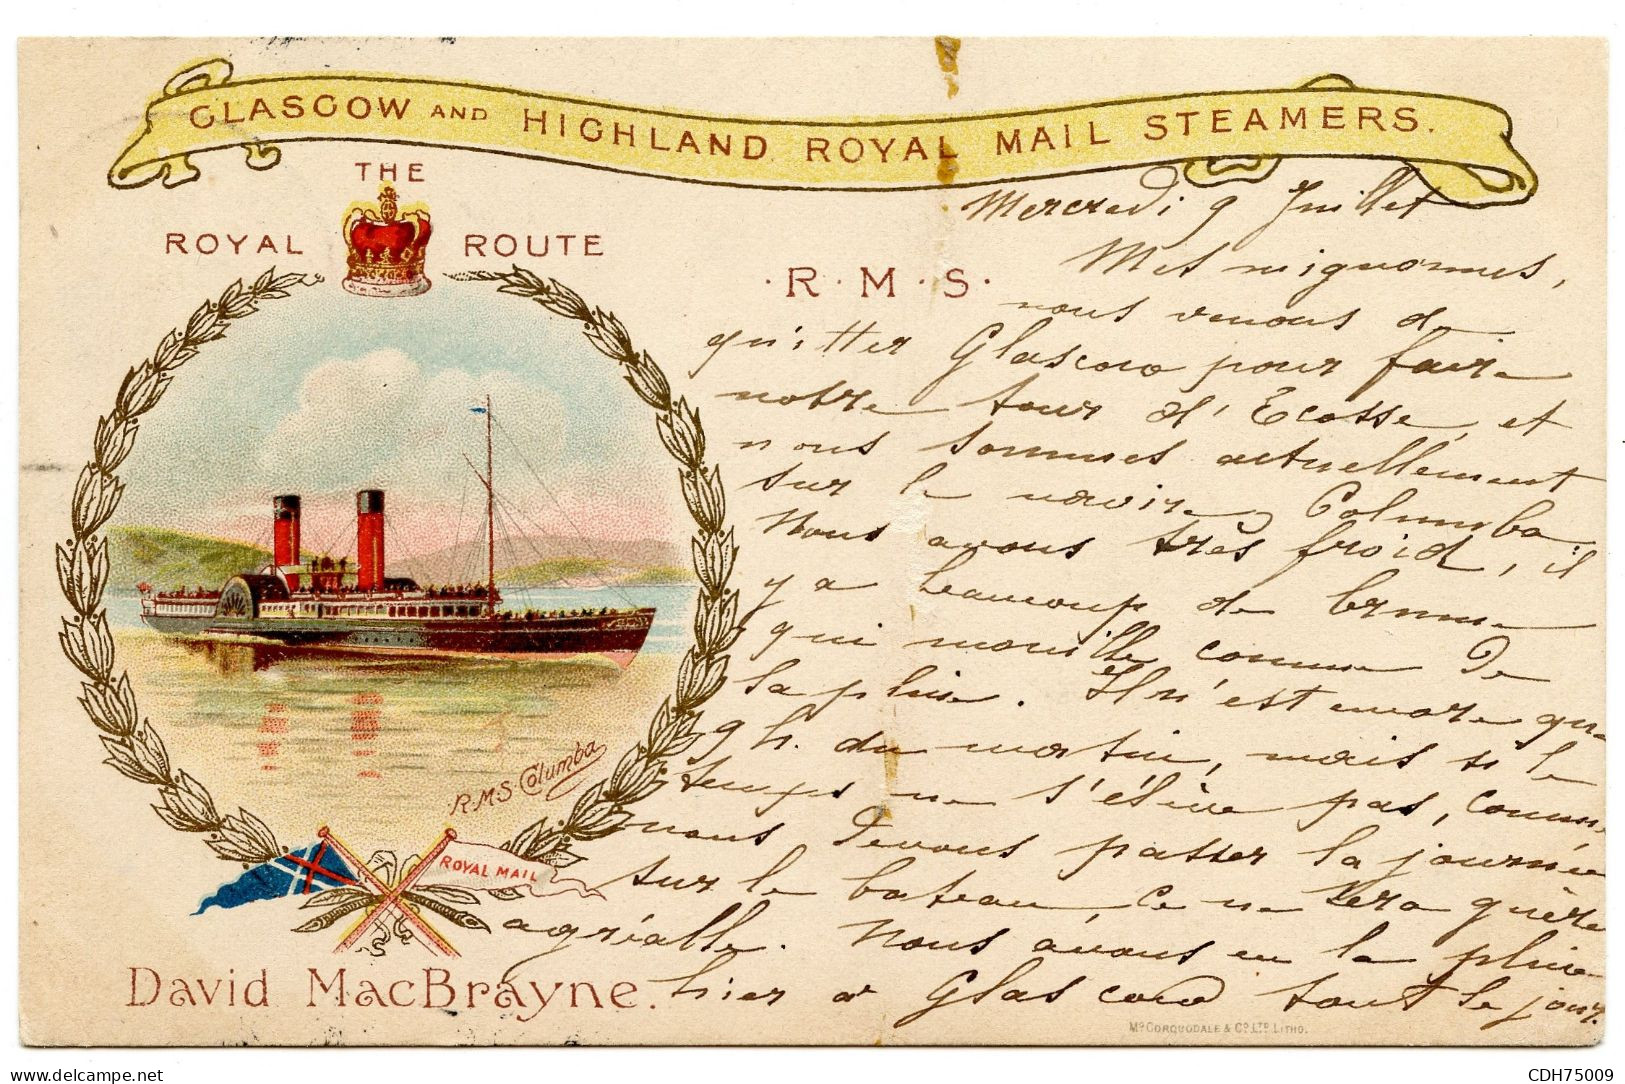 GLASGOW AND HIGHLAND ROYAL MAIL STEAMERS.
THE
ROYAL ROUTE
· R · M · S ·
R.M.S Columba
ROYAL MAIL
David MacBrayne.
Mercredi 9 Juillet
Mes mignonnes,
nous venons de
quitter Glascow pour faire
notre tour d'Ecosse, et
nous sommes actuellement
sur le navire Columba.
Nous avons très froid, il
y a beaucoup de brume
qui mouille comme de
la pluie. Il n'est encore que
9 h. du matin, mais si le
temps ne s'élève pas, comme
nous devons passer la journée
sur le bateau, ce ne sera guère
agréable. Nous avons eu la pluie
hier à Glascow tout le jour.
McCORQUODALE & Co. LTD. LITHO.
delcampe.net
CDH75009